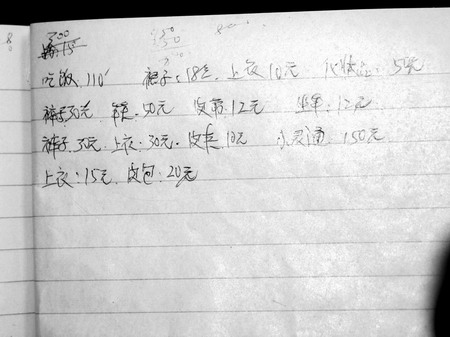 300
吃饭 110 裤子:18元 上衣10元 化妆品:50元
裤子30元 鞋:50元 皮带12元 坐车:12元
裤子:35元 上衣:30元 皮夹10元 小灵通 150元
上衣:15元 皮包:20元